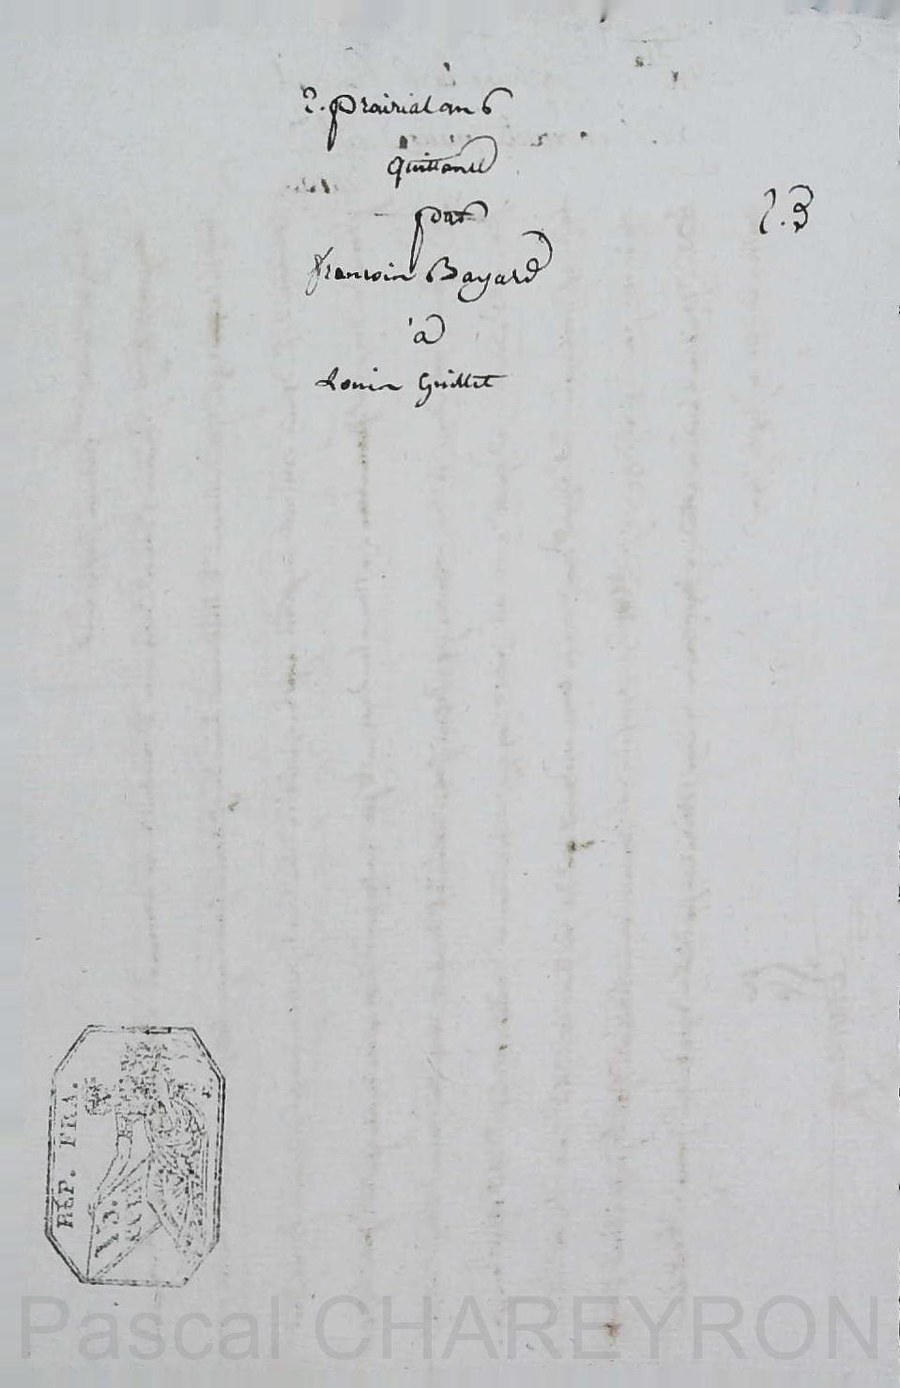 2. prairial an 6
quittance
par
francois Bayard
2.3
à
Louis Guillet
REP. FRA.
Pascal CHAREYRON